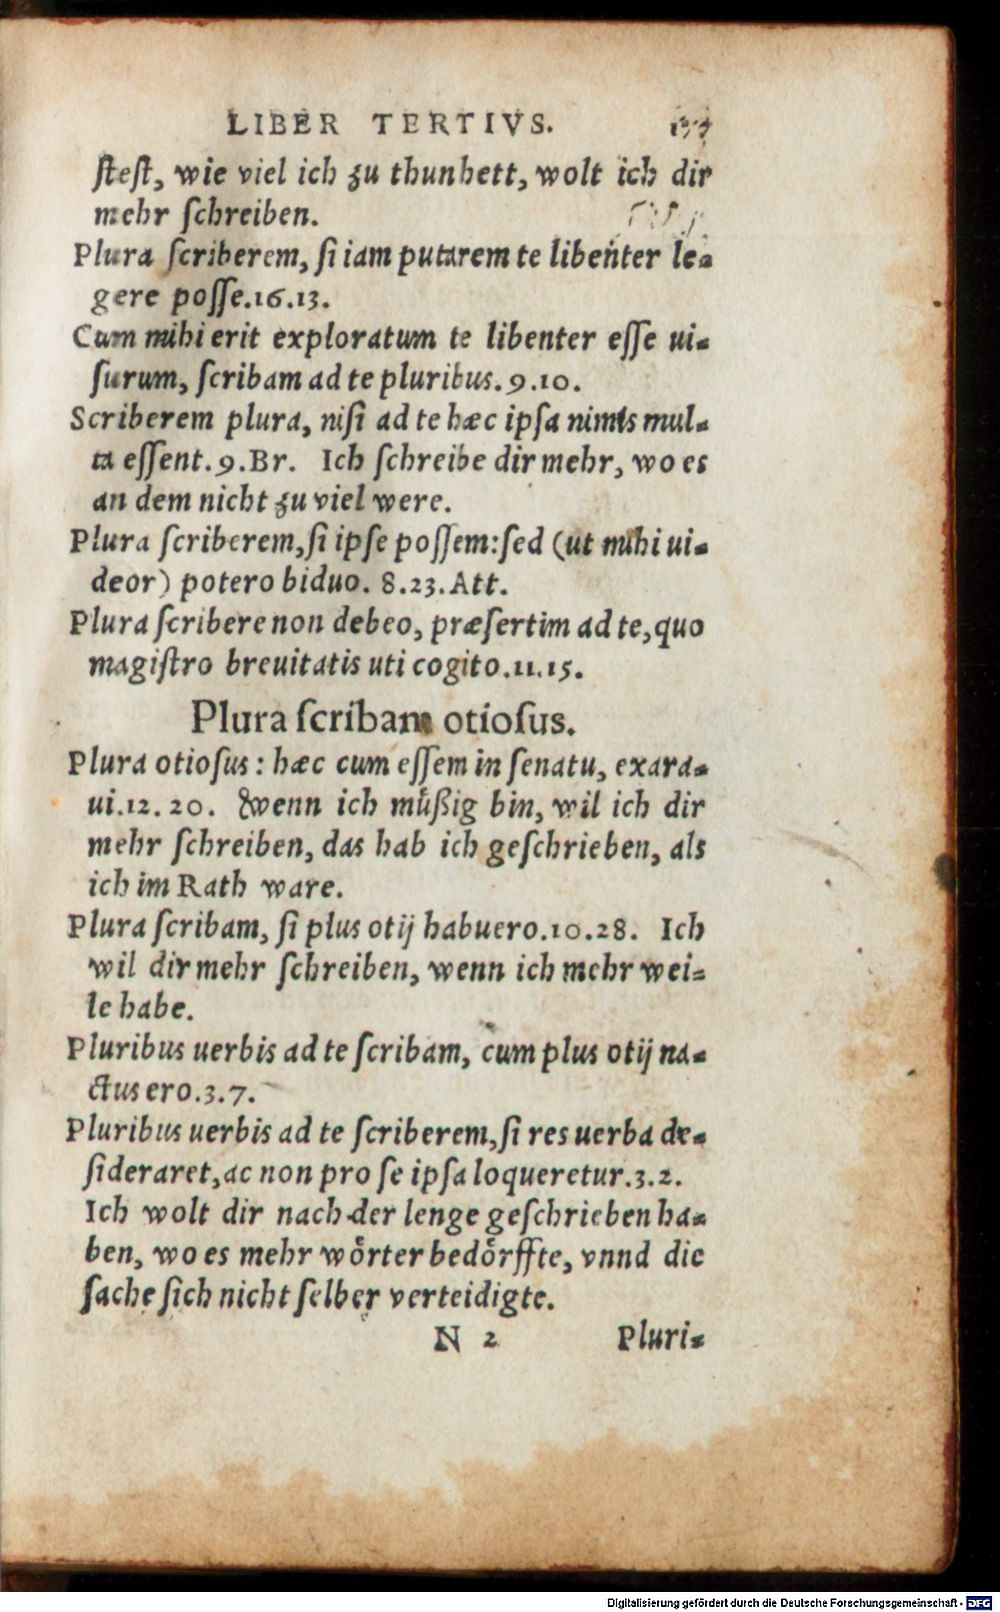 LIBER TERTIVS.
ſteſt, wie viel ich zu thun hett, wolt ich dir
mehr ſchreiben.
Plura ſcriberem, ſi iam putarem te libenter le-
gere poſſe.16.13.
Cum mihi erit exploratum te libenter eſſe ui-
ſurum, ſcribam ad te pluribus.9.10.
Scriberem plura, niſi ad te hæc ipſa nimis mul-
ta eſſent.9.Br. Ich ſchreibe dir mehr, wo es
an dem nicht zu viel were.
Plura ſcriberem, ſi ipſe poſſem: ſed (ut mihi ui-
deor) potero biduo. 8.23.Att.
Plura ſcribere non debeo, præſertim ad te, quo
magiſtro breuitatis uti cogito.11.15.
Plura ſcribam otioſus.
Plura otioſus: hæc cum eſſem in ſenatu, exara-
ui.12.20. Wenn ich muͤßig bin, wil ich dir
mehr ſchreiben, das hab ich geſchrieben, als
ich im Rath ware.
Plura ſcribam, ſi plus otij habuero.10.28. Ich
wil dir mehr ſchreiben, wenn ich mehr wei-
le habe.
Pluribus uerbis ad te ſcribam, cum plus otij na-
ctus ero.3.7.
Pluribus uerbis ad te ſcriberem, ſi res uerba de-
ſideraret, ac non pro ſe ipſa loqueretur.3.2.
Ich wolt dir nach der lenge geſchrieben ha-
ben, wo es mehr woͤrter bedoͤrffte, vnnd die
ſache ſich nicht ſelber verteidigte.
N 2 Pluri-
Digitalisierung gefördert durch die Deutsche Forschungsgemeinschaft - DFG